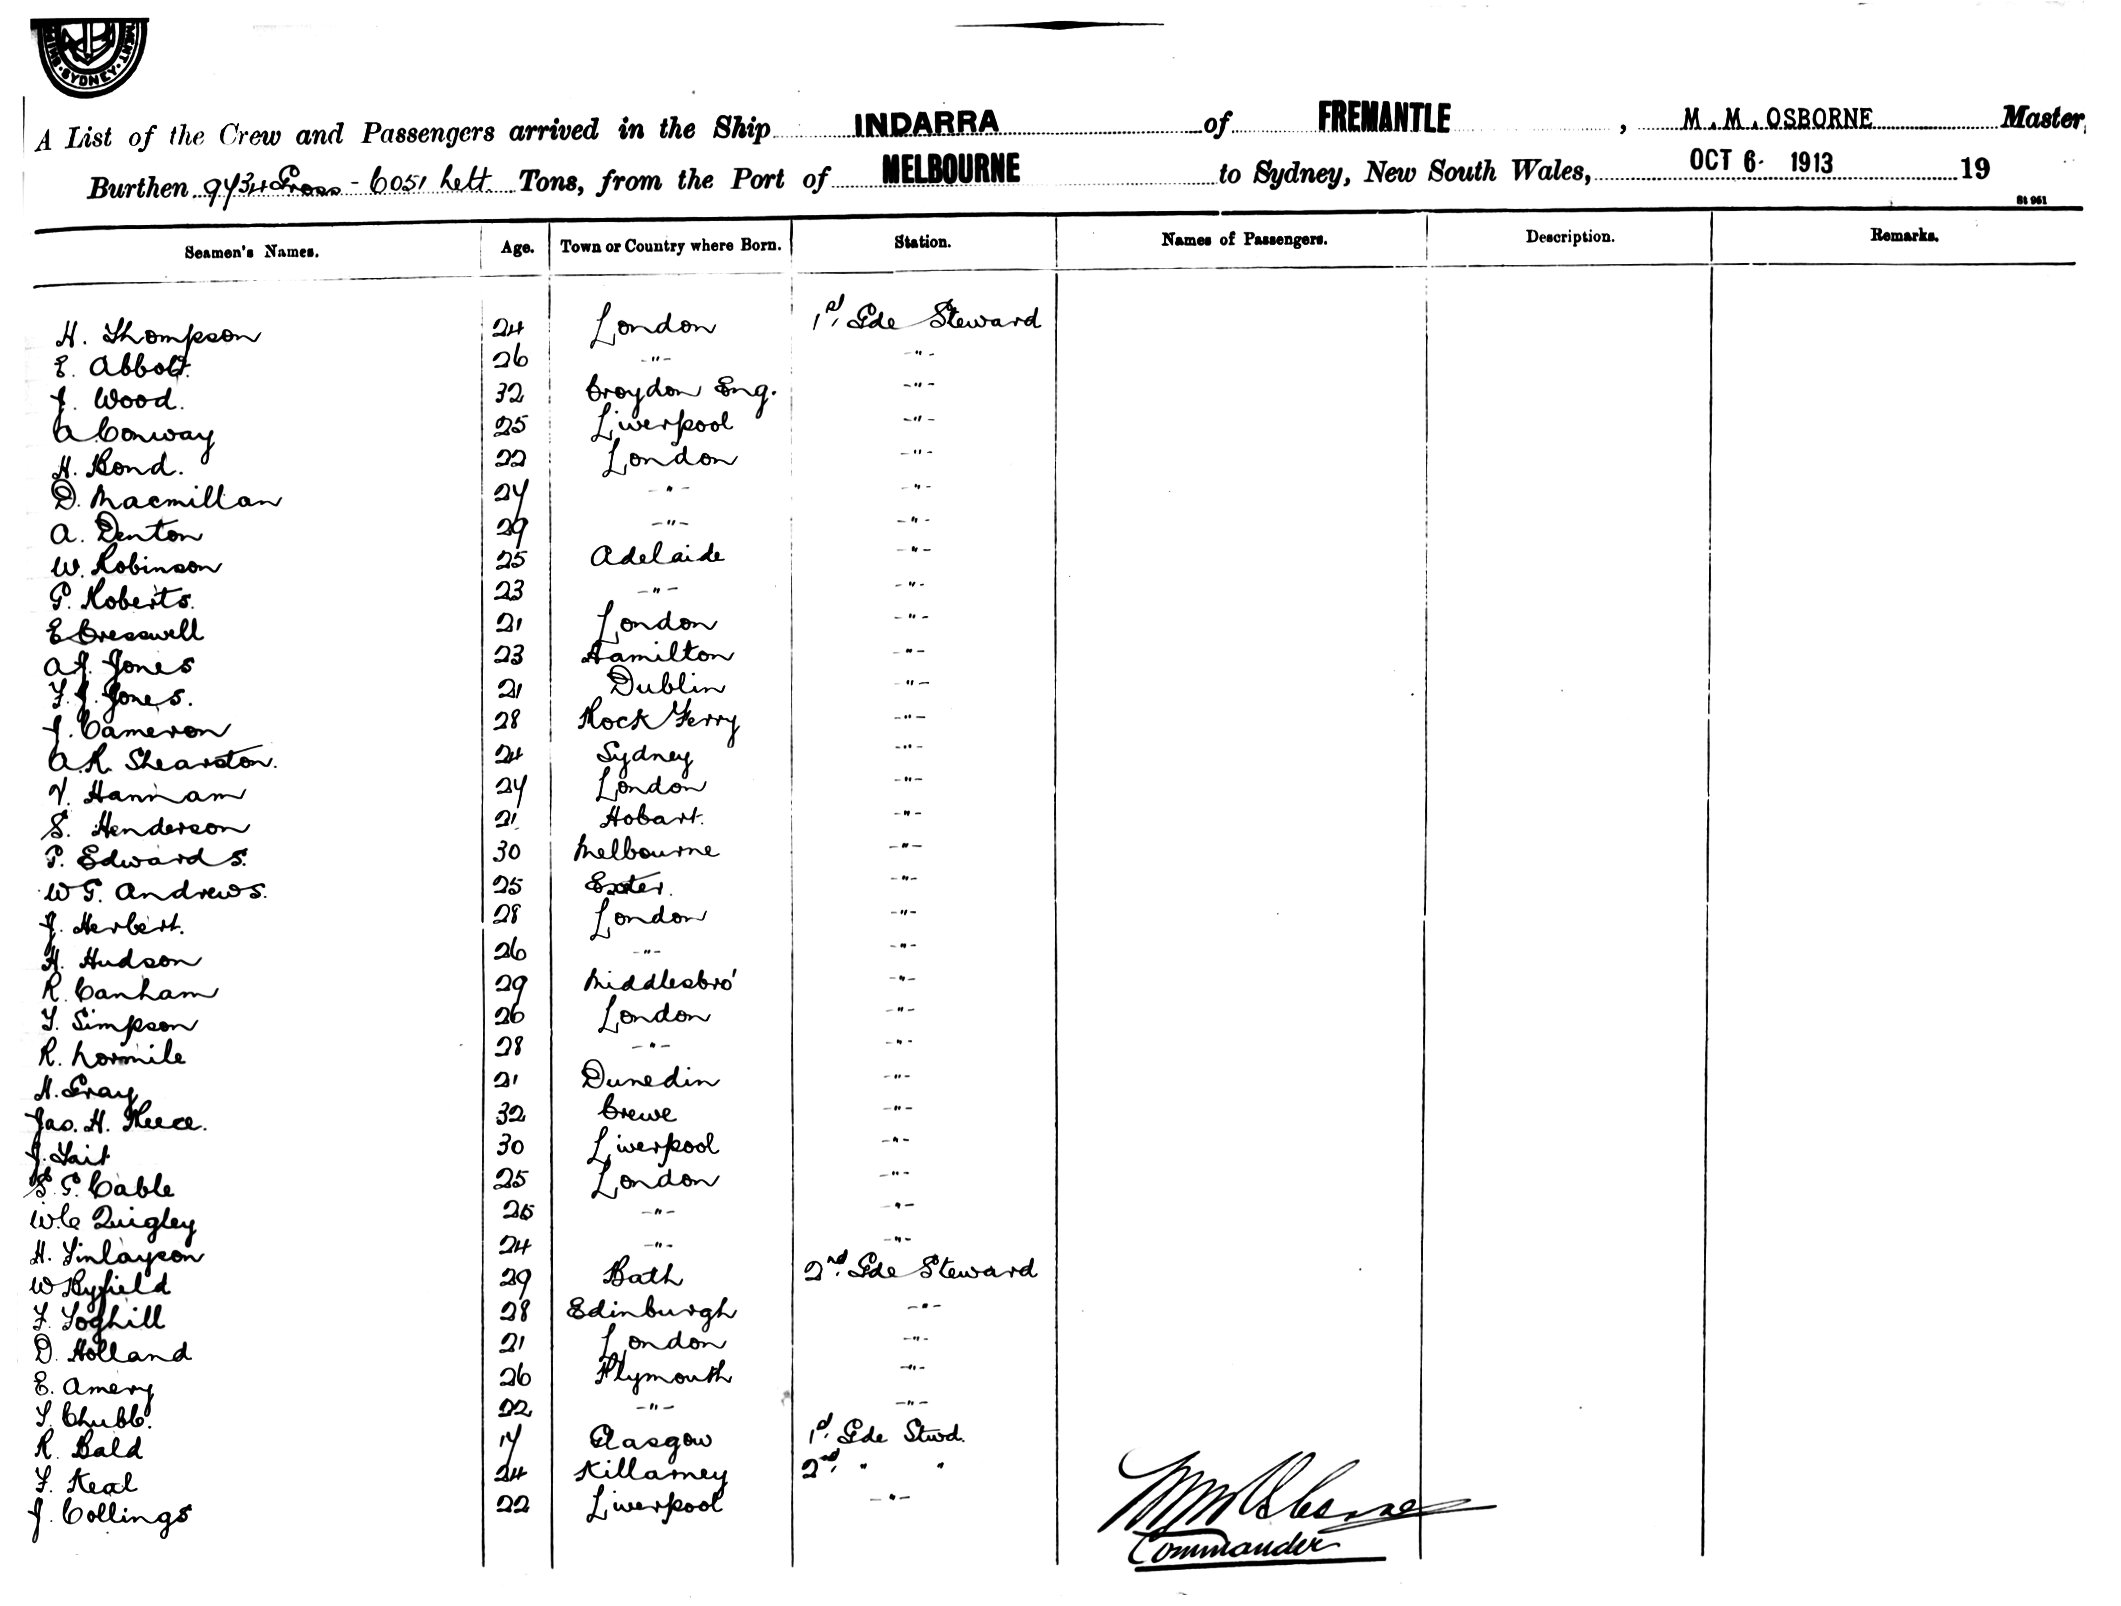 SYDNEY
A List of the Crew and Passengers arrived in the Ship INDARRA of FREMANTLE, M.M.OSBORNE Master,
Burthen 9734 Gross - 6051 Nett Tons, from the Port of MELBOURNE to Sydney, New South Wales, OCT 6 1913 19
St 961
Seamen's Names. Age. Town or Country where Born. Station. Names of Passengers. Description. Remarks.
H. Thompson 24 London 1st Gde Steward
E. Abbott. 26 -"- -"-
J. Wood. 32 Croydon Eng. -"-
A Conway 25 Liverpool -"-
H. Bond. 22 London -"-
D. Macmillan 27 -"- -"-
A. Denton 29 -"- -"-
W. Robinson 25 Adelaide -"-
G. Roberts. 23 -"- -"-
E Cresswell 21 London -"-
A.J. Jones 23 Hamilton -"-
F.J. Jones. 21 Dublin -"-
J. Cameron 28 Rock Ferry -"-
A.R. Shearston. 24 Sydney -"-
V. Hannam 27 London -"-
S. Henderson 21 Hobart. -"-
P. Edwards. 30 Melbourne -"-
W G. Andrews. 25 Exeter. -"-
J. Herbert. 28 London -"-
H. Hudson 26 -"- -"-
R. Canham 29 Middlesbro' -"-
T. Simpson 26 London -"-
R. Normile 28 -"- -"-
H. Gray 21 Dunedin -"-
Jas. H. Reece. 32 Crewe -"-
J. Tait 30 Liverpool -"-
S. G. Cable 25 London -"-
W.C. Quigley 26 -"- -"-
H. Finlayson 24 -"- -"-
W Ryfield 29 Bath 2nd Gde Steward
F. Foghill 28 Edinburgh -"-
D. Holland 21 London -"-
E. Amery 26 Plymouth -"-
T. Chubb. 22 -"- -"-
R. Bald 17 Glasgow 1st Gde Stwd.
F. Keal 24 Killarney 2nd " "
J. Collings 22 Liverpool -"-
MM Osborne
Commander